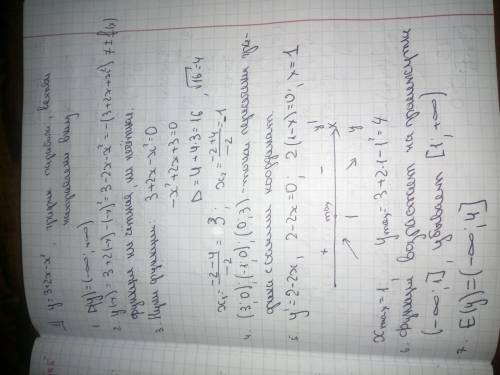 1) y=3+2x-x²; график парабола, ветви
направлены вниз.
1. D(y)=(-∞; +∞)
2. y(-x)=3+2(-x)-(-x)²=3-2x-x²=-(3+2x+x²) ≠ ±f(x)
функция ни чётная, ни нечётная.
3. Нули функции 3+2x-x²=0
-x²+2x+3=0
D=4+4·3=16, √16=4
x₁=(-2-4)/-2=3; x₂=(-2+4)/-2=-1
4. (3;0), (-1;0), (0;3) - точки пересечения гра-
фика с осями координат.
5. y'=2-2x, 2-2x=0; 2(1-x)=0, x=1
+ max - y'
↗ 1 ↘ y x
x max=1, y max=3+2·1-1²=4.
6. функция возрастает на промежутке
(-∞; 1], убывает [1; +∞)
7. E(y)=(-∞; 4]